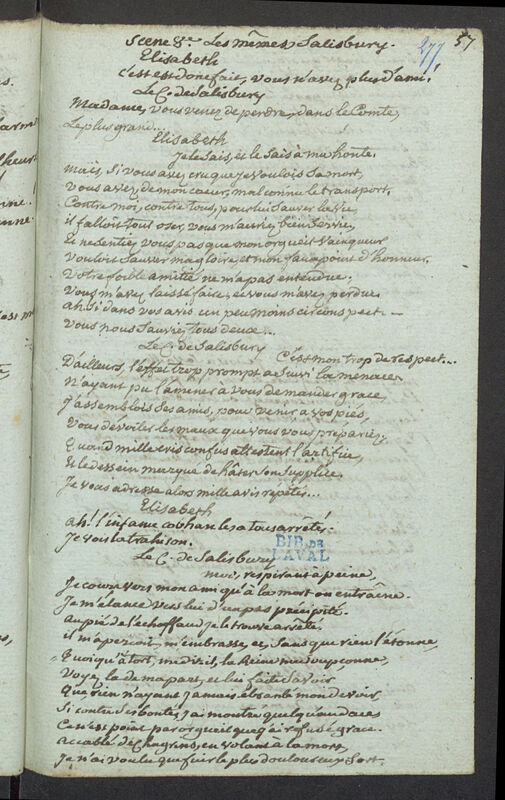 277 57
Scene 8e. Les mêmes, Salisbury.
Elisabeth
C'est est donc fait, vous n'avez plus d'ami!
Le C. de Salisbury
Madame, vous venez de perdre, dans le Comte,
Le plus grand...
Elisabeth
Je le sais, et le sais à ma honte.
Mais, si vous avez cru que je voulois sa mort,
Vous avez, de mon coeur, mal connu le transport,
Contre moi, contre tous, pour lui sauver la vie,
il falloit tout oser, vous m'auriez bien servie,
Et ne sentiez vous pas que mon orgueil vainqueur
Vouloit sauver ma gloire, et mon faux point d'honneur.
Votre foible amitié ne m'a pas entendue.
Vous m'avez laissé faire, et vous m'avez perdue.
ah! si dans vos avis un peu moins circonspect.-
Vous nous sauviez tous deux...
Le C. de Salisbury
C'est mon trop de respect...
D'ailleurs, l'effet trop prompt a suivi la menace.
N'ayant pu l'amener à vous demander grace,
J'assemblois ses amis, pour venir à vos pieds,
Vous dévoiler les maux que vous vous prépariez.
Quand mille cris confus attestent l'artifice,
Et le dessein marqué de hâter son supplice,
Je vous adresse alors mille avis répétés...
Elisabeth
ah! l'infame cobhan les a tous arrêtés.
Je vois la trahison.
BIB. DE
LAVAL
Le C. de Salisbury
moi, respirant à peine,
Je cours vers mon ami qu'à la mort on entraîne.
Je m'élance vers lui d'un pas précipité.
Au pié de l'échaffaud je le trouve arrêté.
il m'aperçoit, m'embrasse, et, sans que rien l'étonne,
„ Quoiqu'à tort, me dit-il, la Reine me soupçonne,
Voyez la de ma part, et lui faite savoir
Que rien n'ayant jamais ébranlé mon devoir
Si contre ses bontés j'ai montré quelqu'audace
Ce n'est point par orgueil que j'ai refusé grace.
accablé de Chagrins, en volant à la mort,
Je n'ai voulu que fuir le plus douloureux sort.